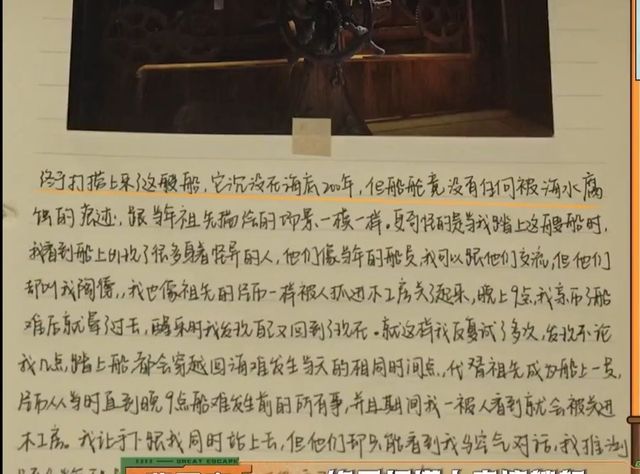 终于打捞上来了这艘船，它沉没在海底200年，但船舵竟没有任何被海水腐
蚀的痕迹，跟当年祖先描绘的场景一模一样。更奇怪的是当我踏上这艘船时，
我看到船上出现了很多身着怪异的人，他们像当年的船员，我可以跟他们交流，但他们
却叫我陶僑，我也像祖先的日历一样被人抓进木工房关了起来，晚上9点，我亲历了船
难后就晕了过去，醒来时我发现自己又回到了现在。就这样我反复试了多次，发现不论
我几点踏上船都会穿越回海难发生当天的相同时间点，代替祖先成为船上一员，
历从当时直到晚9点船难发生前的所有事，并且期间我一被人看到就会被关进
木工房。我让手下跟我同时踏上去，但他们却只能看到我与空气对话，我推测
GREAT ESCAPE